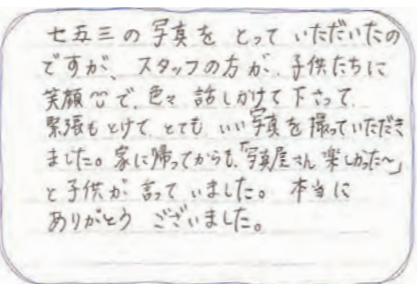 七五三の写真をとっていただいたの
ですが、スタッフの方が、子供たちに
笑顔で、色々話しかけて下さって、
緊張もとけて、とてもいい写真を撮っていただき
ました。家に帰ってからも、「写真屋さん楽しかった〜」
と子供が言っていました。本当に
ありがとうございました。